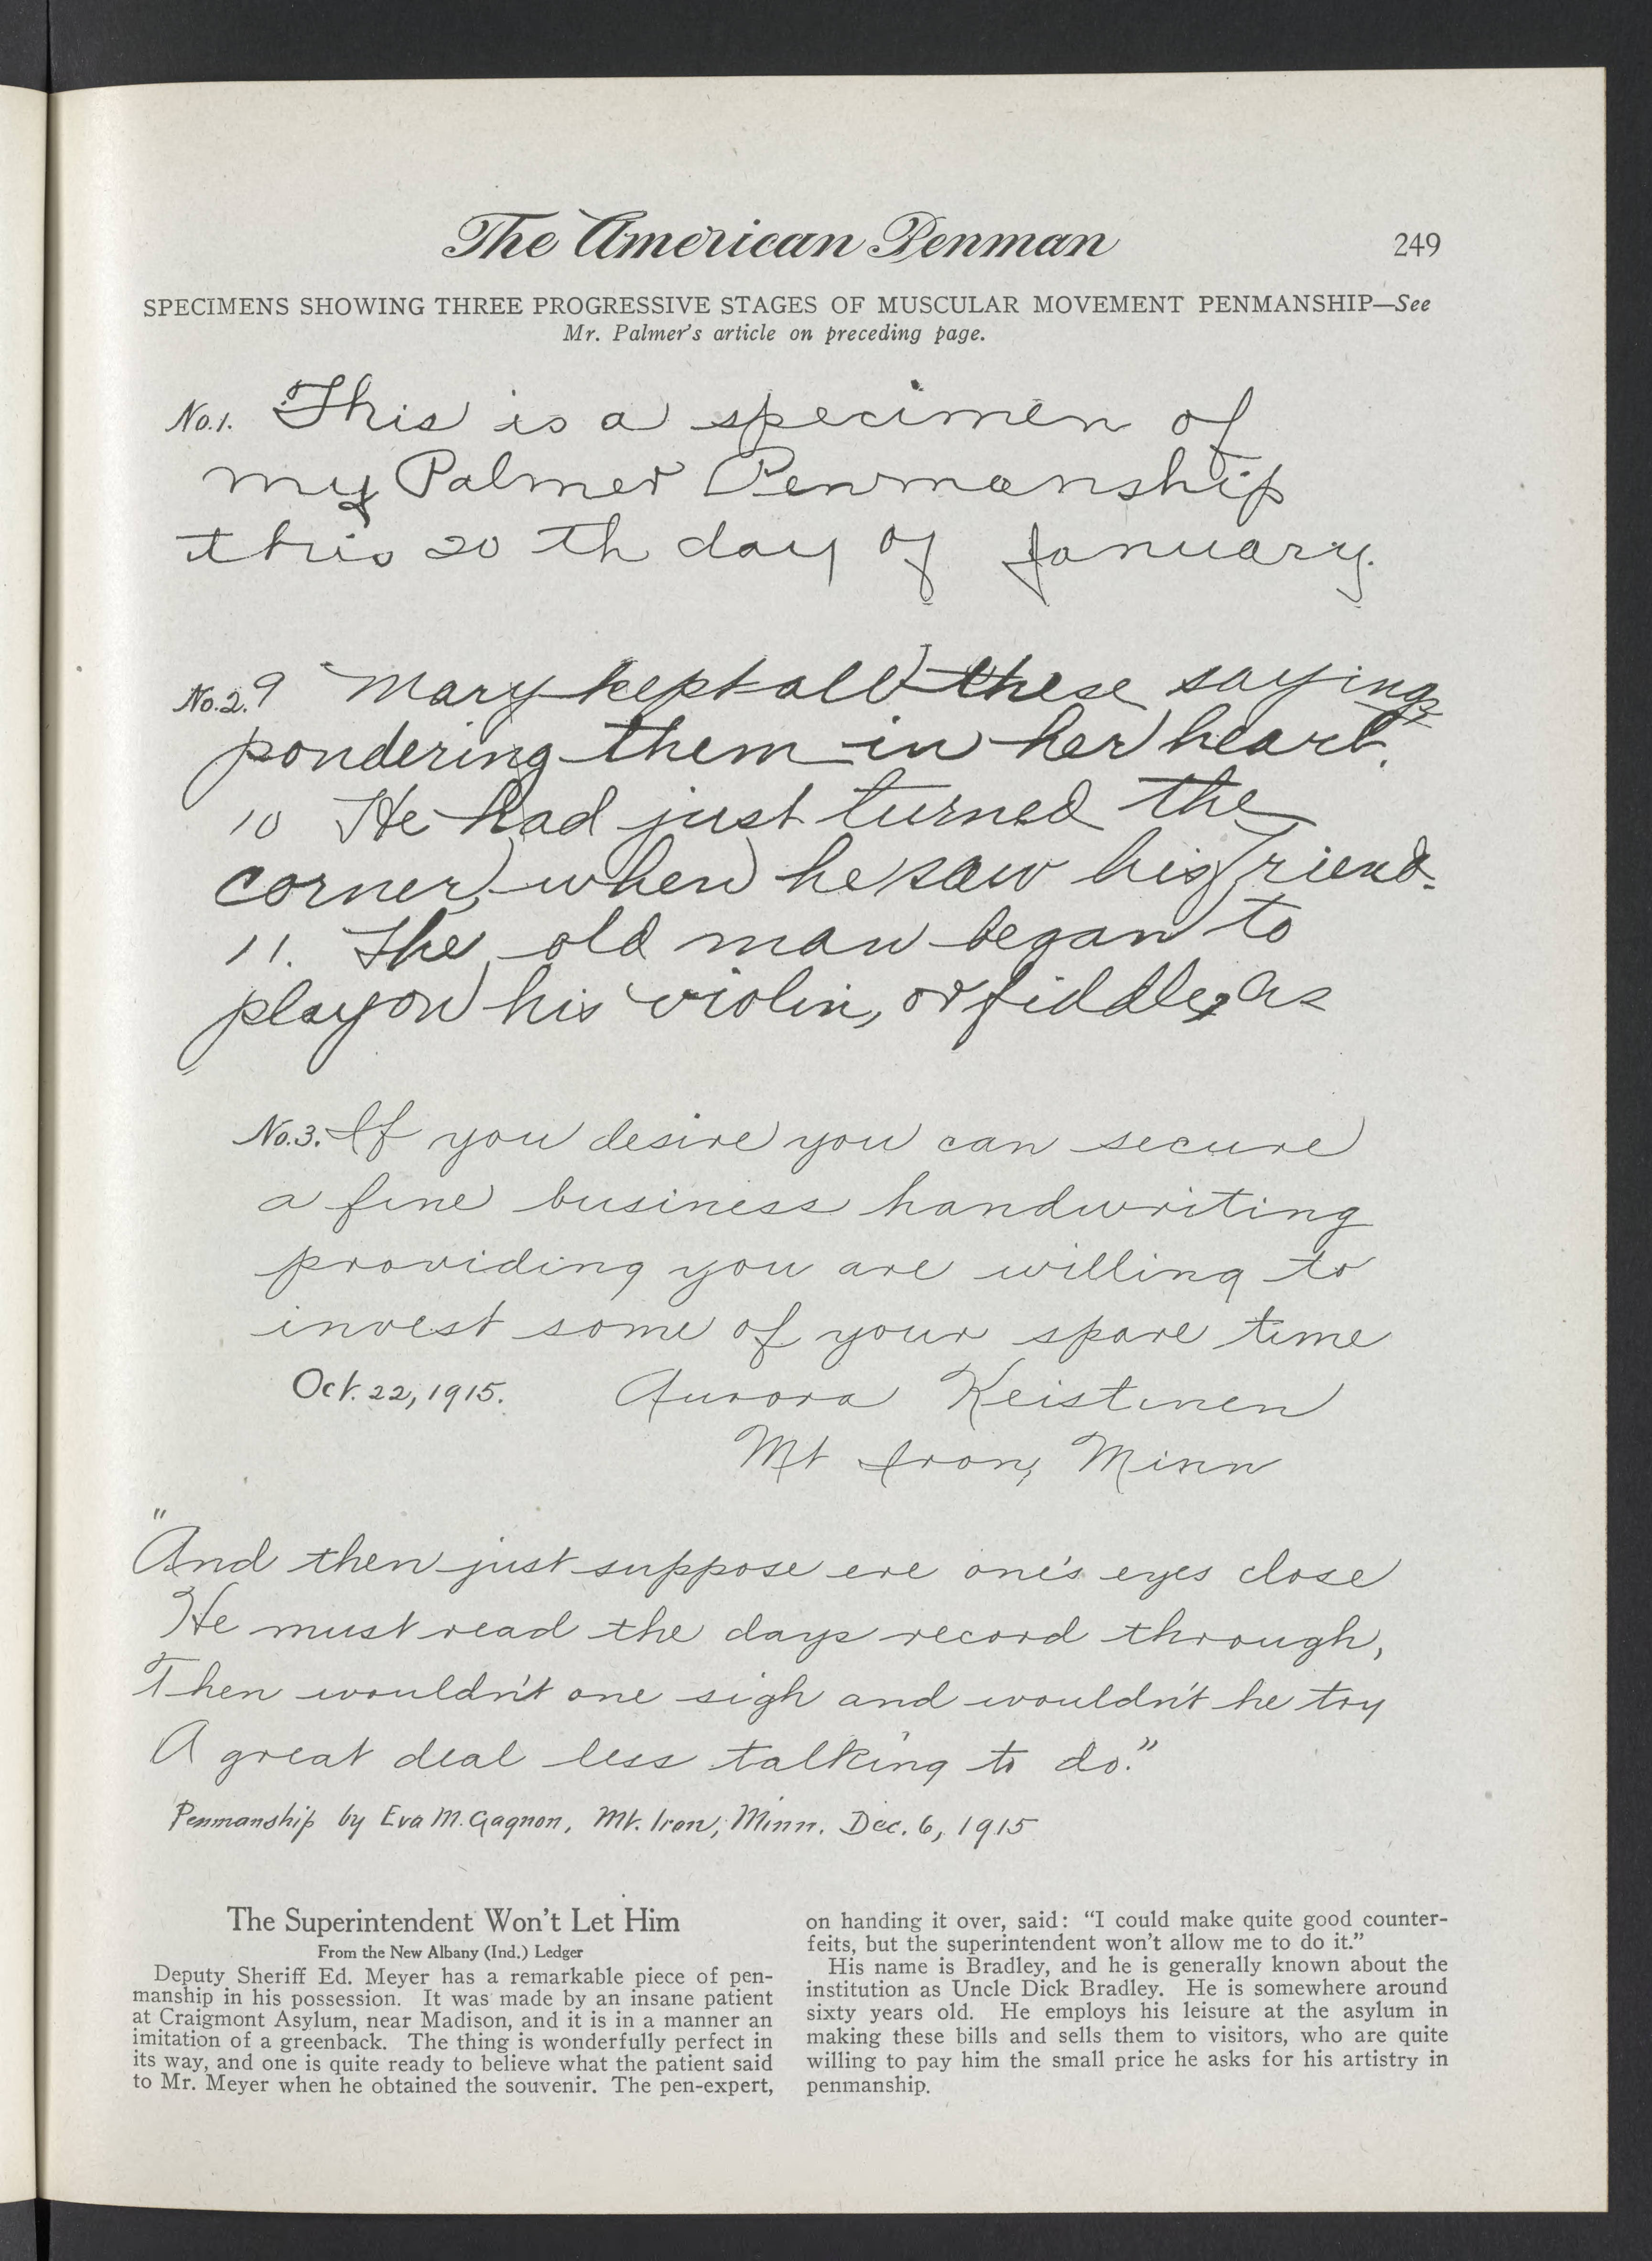 The American Penman 249
SPECIMENS SHOWING THREE PROGRESSIVE STAGES OF MUSCULAR MOVEMENT PENMANSHIP—See
Mr. Palmer's article on preceding page.
No.1. This is a specimen of
my Palmer Penmanship
this 20 th day of January.
No.2. 9 "Mary kept all these sayings
pondering them in her heart."
10 He had just turned the
corner, when he saw his friend.
11. The old man began to
play on his violin, or fiddle, as
No.3. If you desire you can secure
a fine business handwriting
providing you are willing to
invest some of your spare time
Oct. 22, 1915. Aurora Keistinen
Mt Iron, Minn
"And then just suppose ere one's eyes close
He must read the days record through,
Then wouldn't one sigh and wouldn't he try
A great deal less talking to do."
Penmanship by Eva M. Gagnon, Mt. Iron, Minn. Dec. 6, 1915
The Superintendent Won't Let Him
From the New Albany (Ind.) Ledger
Deputy Sheriff Ed. Meyer has a remarkable piece of pen-
manship in his possession. It was made by an insane patient
at Craigmont Asylum, near Madison, and it is in a manner an
imitation of a greenback. The thing is wonderfully perfect in
its way, and one is quite ready to believe what the patient said
to Mr. Meyer when he obtained the souvenir. The pen-expert,
on handing it over, said: "I could make quite good counter-
feits, but the superintendent won't allow me to do it."
His name is Bradley, and he is generally known about the
institution as Uncle Dick Bradley. He is somewhere around
sixty years old. He employs his leisure at the asylum in
making these bills and sells them to visitors, who are quite
willing to pay him the small price he asks for his artistry in
penmanship.